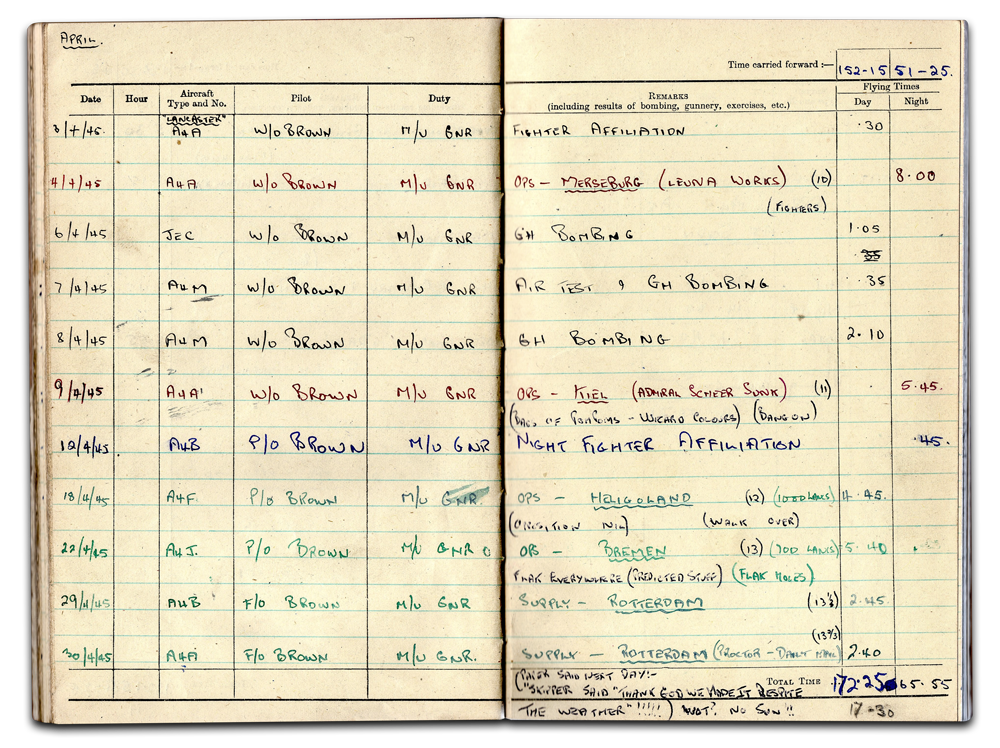 APRIL.
Time carried forward :— 152-15 51-25.
Date Hour Aircraft Type and No. Pilot Duty REMARKS (including results of bombing, gunnery, exercises, etc.) Flying Times Day Night
"LANCASTER"
3/4/45. A4A W/O BROWN M/U GNR FIGHTER AFFILIATION .30
4/4/45 A4A W/O BROWN M/U GNR OPS - MERSEBURG (LEUNA WORKS) (10) 8.00
(FIGHTERS)
6/4/45 JEC W/O BROWN M/U GNR GH BOMBING 1.05
35
7/4/45 A4M W/O BROWN M/U GNR AIR TEST & GH BOMBING .35
8/4/45 A4M W/O BROWN M/U GNR GH BOMBING 2.10
9/4/45 A4A' W/O BROWN M/U GNR OPS - KIEL (ADMIRAL SCHEER SUNK) (11) 5.45.
(BAGS OF POMPOMS - WIZARD COLOURS) (BANG ON)
12/4/45 A4B P/O BROWN M/U GNR NIGHT FIGHTER AFFILIATION .45.
18/4/45 A4F. P/O BROWN M/U GNR. OPS - HELIGOLAND (12) (1000 LANCS) 4.45.
(OPPISITION NIL) (WALK OVER)
22/4/45 A4J. P/O BROWN M/U GNR OPS - BREMEN (13) (700 LANCS) 5.40
FLAK EVERYWHERE (PREDICTED STUFF) (FLAK HOLES)
29/4/45 A4B F/O BROWN M/U GNR SUPPLY - ROTTERDAM (13⅓) 2.45
(13⅔)
30/4/45 A4A F/O BROWN M/U GNR. SUPPLY - ROTTERDAM (PROCTOR - DAILY MAIL) 2.40
(PAPER SAID NEXT DAY:- TOTAL TIME 172.25 65.55
"SKIPPER SAID "THANK GOD WE MADE IT DESPITE
THE WEATHER"!!!!!) WOT? NO SUN!! 17-30